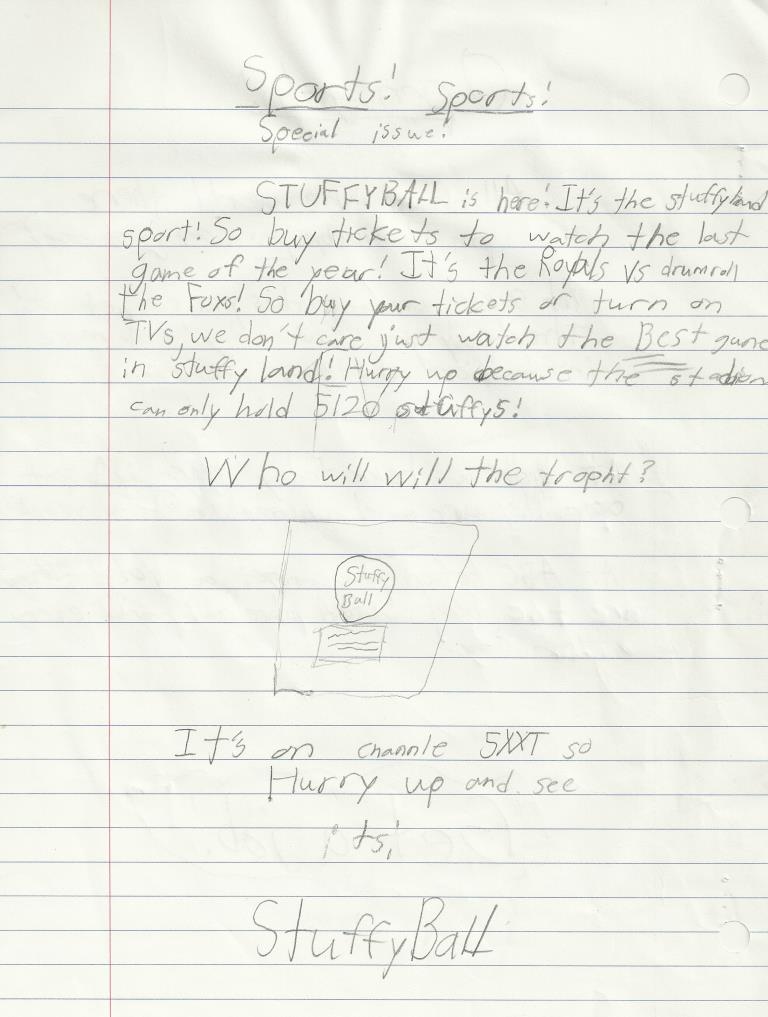 Sports! Sports!
Special issue!
STUFFYBALL is here! It's the stuffyland
sport! So buy tickets to watch the last
game of the year! It's the Royals vs drumroll
the Foxs! So buy your tickets or turn on
TVs, we don't care just watch the Best game
in stuffy land! Hurry up because the
can only hold 5120 stuffys!
Who will will the tropht?
Stuffy
Ball
It's on channle 5XXT so
Hurry up and see
its!
StuffyBall